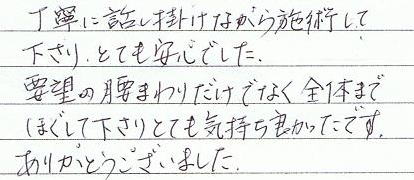 丁寧に話し掛けながら施術して
下さり、とても安心でした.
要望の腰まわりだけでなく全体まで
ほぐして下さりとても気持ち良かったです.
ありがとうございました.